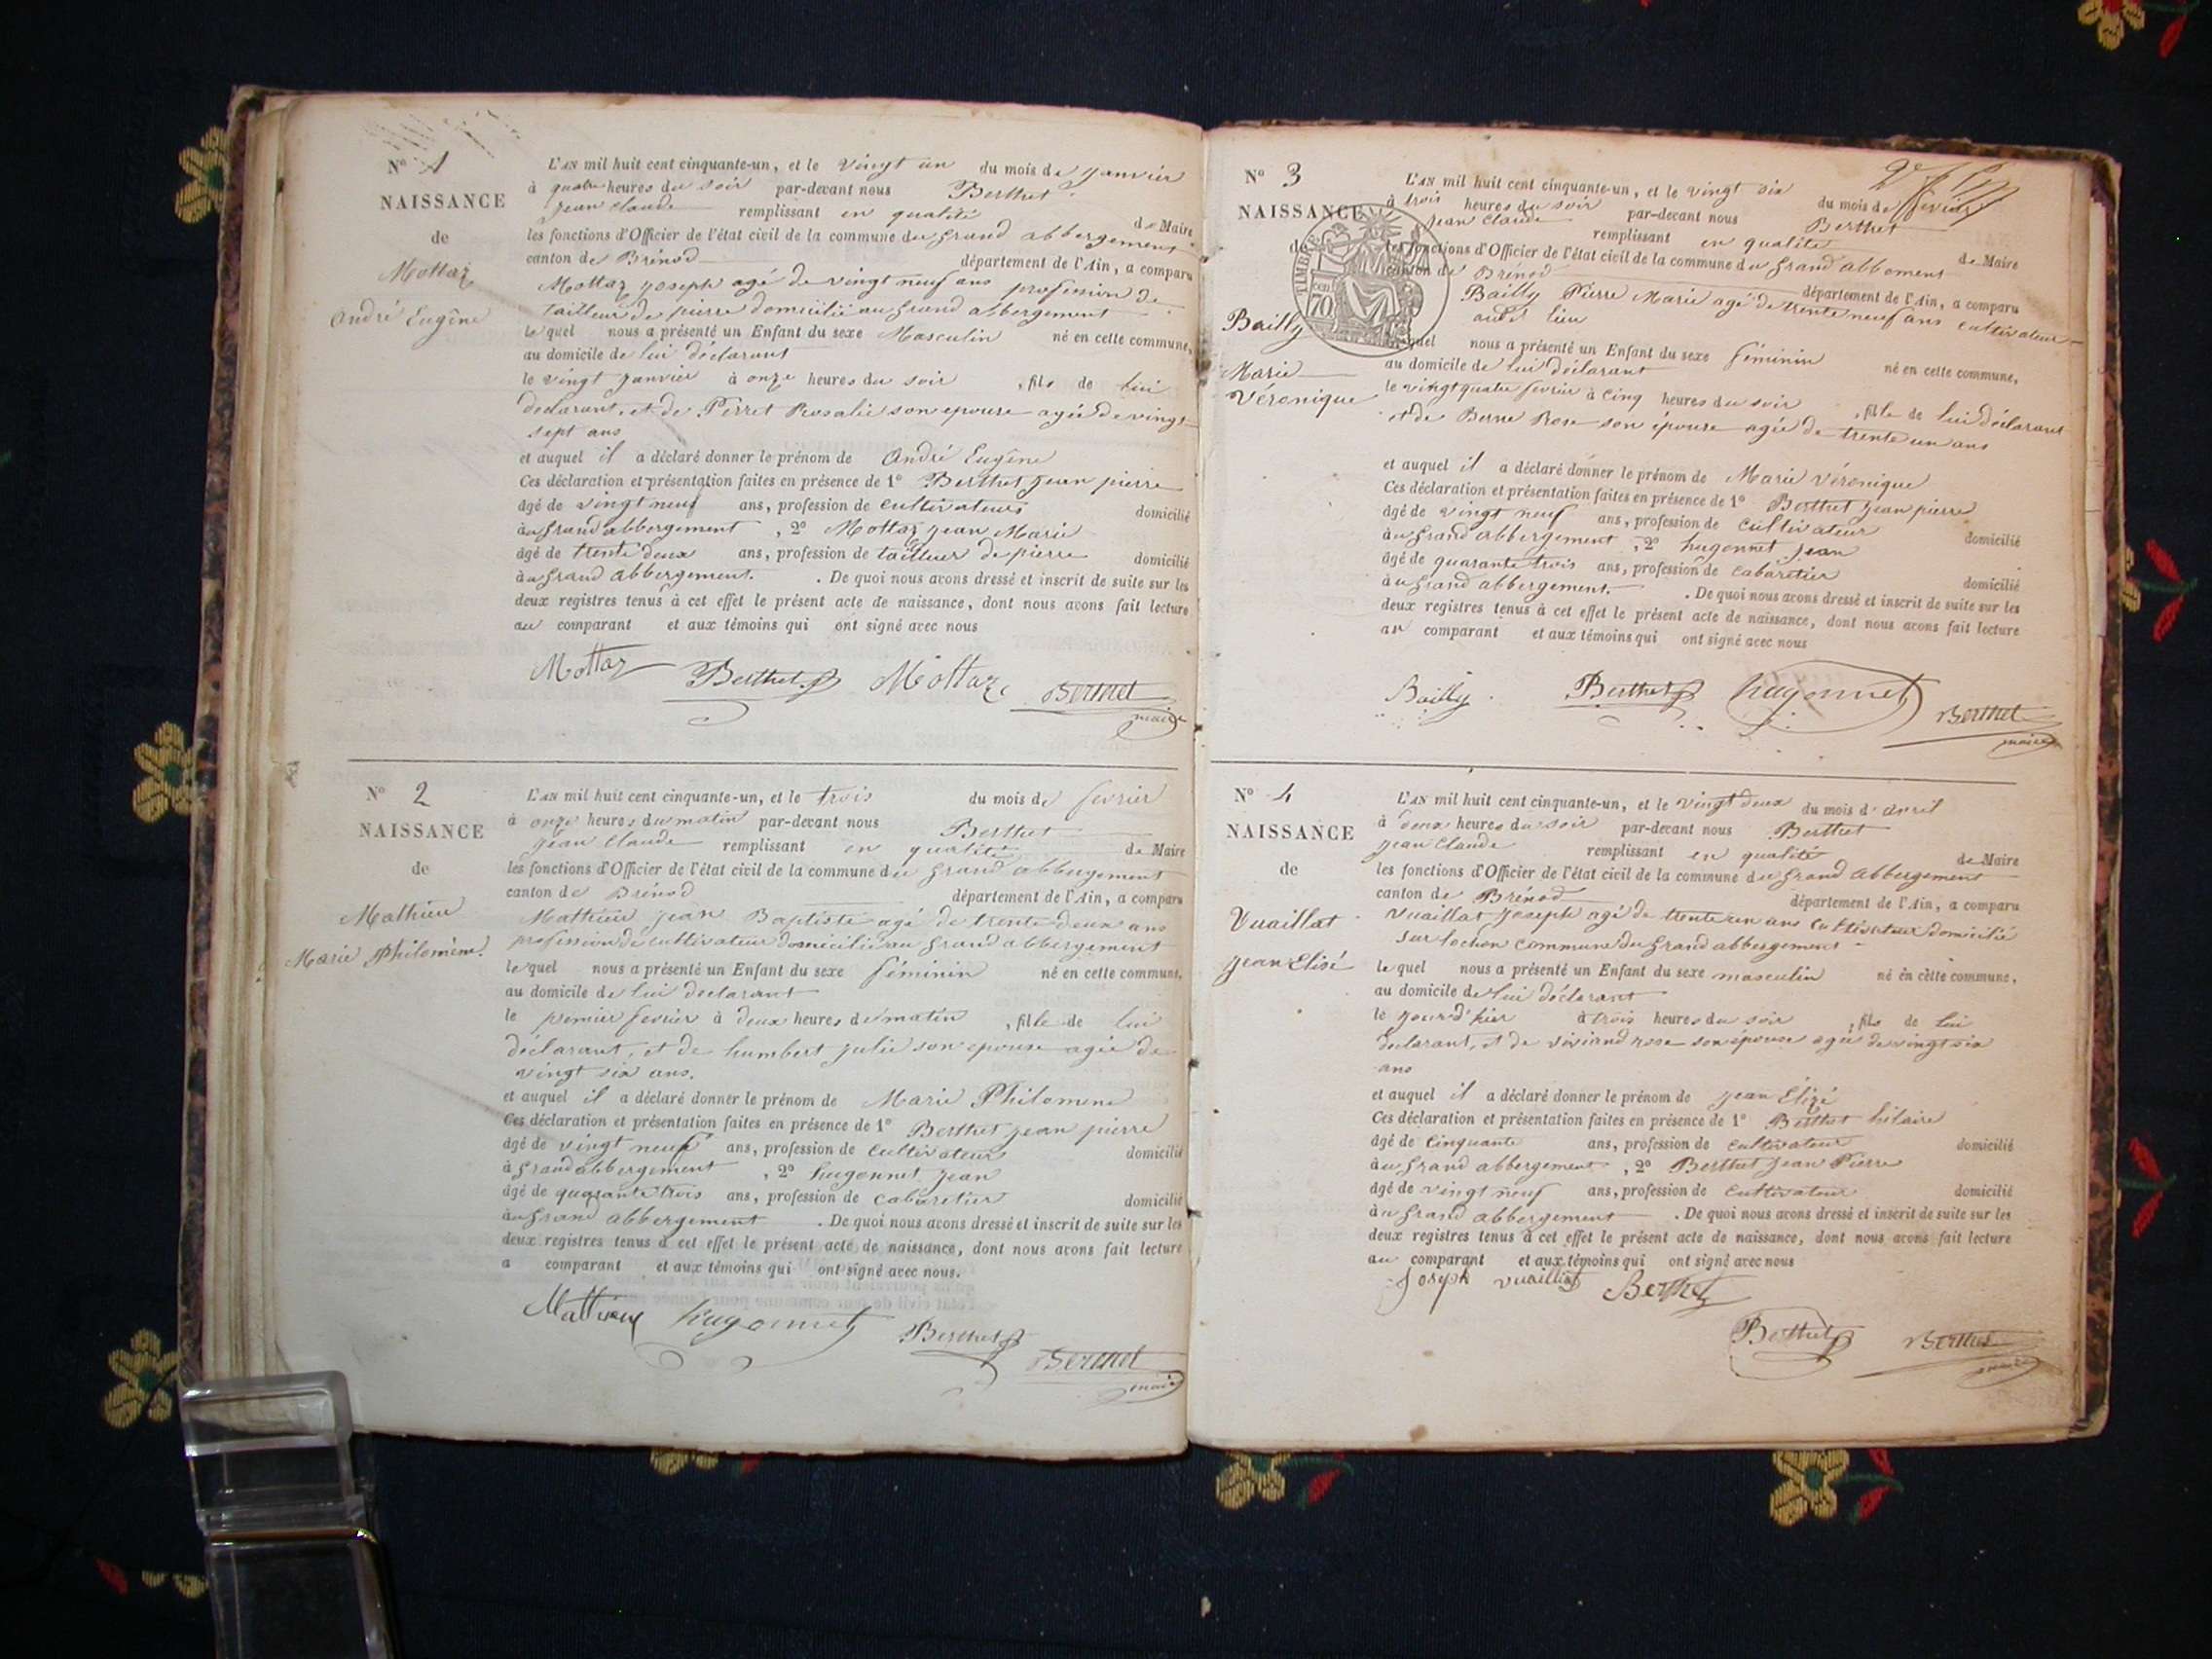 N° 1
NAISSANCE
de
Mottaz
André Eugêne
L'AN mil huit cent cinquante-un, et le vingt un du mois de janvier
à quatre heures du soir par-devant nous Berthet
jean Claude remplissant en qualité de Maire
les fonctions d'Officier de l'état civil de la commune du grand abbergement
canton de Brénod département de l'Ain, a comparu
Mottaz joseph agé de vingt neuf ans profession de
tailleur de pierre domicilié au grand abbergement
lequel nous a présenté un Enfant du sexe Masculin né en cette commune,
au domicile de lui déclarant
le vingt janvier à onze heures du soir , fils de lui
declarant, et de Perret Rosalie son epouse agée de vingt
sept ans
et auquel il a déclaré donner le prénom de André Eugêne
Ces déclaration et présentation faites en présence de 1° Berthet jean pierre
âgé de vingt neuf ans, profession de cultivateur domicilié
au grand abbergement , 2° Mottaz jean Marie
âgé de trente deux ans, profession de tailleur de pierre domicilié
au grand abbergement. . De quoi nous avons dressé et inscrit de suite sur les
deux registres tenus à cet effet le présent acte de naissance, dont nous avons fait lecture
au comparant et aux témoins qui ont signé avec nous
Mottaz Berthet Mottaz Berthet
maire
N° 2
NAISSANCE
de
Mathieu
Marie Philomène
L'AN mil huit cent cinquante-un, et le trois du mois de fevrier
à onze heures du matin par-devant nous Berthet
jean Claude remplissant en qualité de Maire
les fonctions d'Officier de l'état civil de la commune du grand abbergement
canton de Brénod département de l'Ain, a comparu
Mathieu jean Baptiste agé de trente deux ans
profession de cultivateur domicilié au grand abbergement
lequel nous a présenté un Enfant du sexe féminin né en cette commune,
au domicile de lui declarant
le premier fevrier à deux heures du matin , fille de lui
déclarant, et de humbert julie son epouse agée de
vingt six ans.
et auquel il a déclaré donner le prénom de Marie Philomene
Ces déclaration et présentation faites en présence de 1° Berthet jean pierre
âgé de vingt neuf ans, profession de cultivateur domicilié
à grand abbergement , 2° hugonnet jean
âgé de quarante trois ans, profession de cabaretier domicilié
au grand abbergement . De quoi nous avons dressé et inscrit de suite sur les
deux registres tenus à cet effet le présent acte de naissance, dont nous avons fait lecture
a comparant et aux témoins qui ont signé avec nous.
Mathieu hugonnet Berthet Berthet
maire
N° 3
NAISSANCE
de
Bailly
Marie
Véronique
TIMBRE
70
L'AN mil huit cent cinquante-un, et le vingt six du mois de fevrier
à trois heures du soir par-devant nous Berthet
jean Claude remplissant en qualité de Maire
les fonctions d'Officier de l'état civil de la commune du grand abbement
canton de Brénod département de l'Ain, a comparu
Bailly Pierre Marie agé de trente neuf ans cultivateur
audit lieu
lequel nous a présenté un Enfant du sexe féminin né en cette commune,
au domicile de lui déclarant
le vingt quatre fevrier à cinq heures du soir , fille de lui déclarant
et de Berne Rose son épouse agée de trente un ans
et auquel il a déclaré donner le prénom de Marie Véronique
Ces déclaration et présentation faites en présence de 1° Berthet jean pierre
âgé de vingt neuf ans, profession de cultivateur domicilié
au grand abbergement , 2° hugonnet jean
âgé de quarante trois ans, profession de cabaretier domicilié
au grand abbergement. . De quoi nous avons dressé et inscrit de suite sur les
deux registres tenus à cet effet le présent acte de naissance, dont nous avons fait lecture
au comparant et aux témoins qui ont signé avec nous
Bailly Berthet hugonnet Berthet
maire
N° 4
NAISSANCE
de
Vuaillat
jean Elisé
L'AN mil huit cent cinquante-un, et le vingt deux du mois d'avril
à deux heures du soir par-devant nous Berthet
jean Claude remplissant en qualité de Maire
les fonctions d'Officier de l'état civil de la commune du grand abbergement
canton de Brénod département de l'Ain, a comparu
Vuaillat joseph agé de trente un ans cultivateur domicilié
sur lochon commune du grand abbergement
lequel nous a présenté un Enfant du sexe masculin né en cette commune,
au domicile de lui déclarant
le jour d'hier à trois heures du soir , fils de lui
declarant, et de viviand rose son épouse agée de vingt six
ans
et auquel il a déclaré donner le prénom de jean Elizé
Ces déclaration et présentation faites en présence de 1° Berthet hilaire
âgé de cinquante ans, profession de cultivateur domicilié
au grand abbergement , 2° Berthet jean Pierre
âgé de vingt neuf ans, profession de cultivateur domicilié
au grand abbergement . De quoi nous avons dressé et inscrit de suite sur les
deux registres tenus à cet effet le présent acte de naissance, dont nous avons fait lecture
au comparant et aux témoins qui ont signé avec nous
joseph vuaillat Berthet
Berthet Berthet
maire